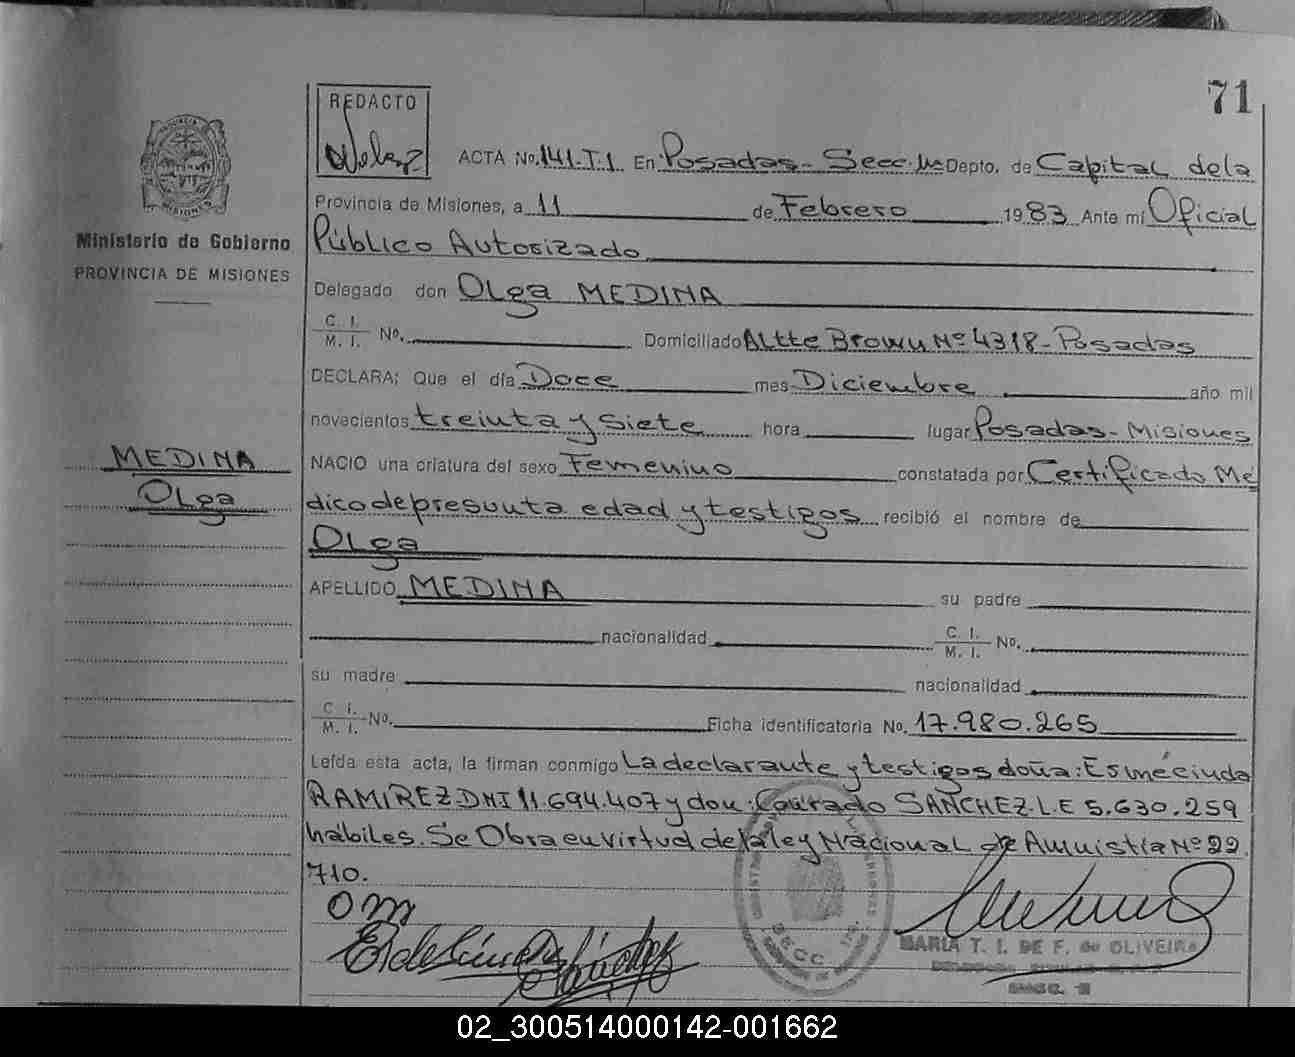 71
REDACTO
ACTA No. 141.T.1 En Posadas - Secc. 1a Depto. de Capital dela
Provincia de Misiones, a 11 de Febrero 1983 Ante mí Oficial
Público Autorizado
Ministerio de Gobierno
PROVINCIA DE MISIONES
Delegado don Olga MEDINA
C. I.
M. I. No. Domiciliado Altte Brown Nº 4318 - Posadas
DECLARA; Que el día Doce mes Diciembre año mil
novecientos treinta y siete hora lugar Posadas - Misiones
MEDINA
Olga
NACIO una criatura del sexo Femenino constatada por Certificado Mé
dico de presunta edad y testigos recibió el nombre de
Olga
APELLIDO MEDINA su padre
nacionalidad C. I.
M. I. No.
su madre nacionalidad
C. I.
M. I. No. Ficha identificatoria No. 17.980.265
Leída esta acta, la firman conmigo La declarante y testigos doña: Esmécinda
RAMIREZ-DNI 11.694.407 y don: Conrado SANCHEZ-L.E 5.630.259
hábiles. Se Obra en virtud de la ley Nacional de Amnistía Nº 22.
710.
O M
SECC. 1a.
MARIA T. I. DE F. de OLIVEIRA
02_300514000142-001662